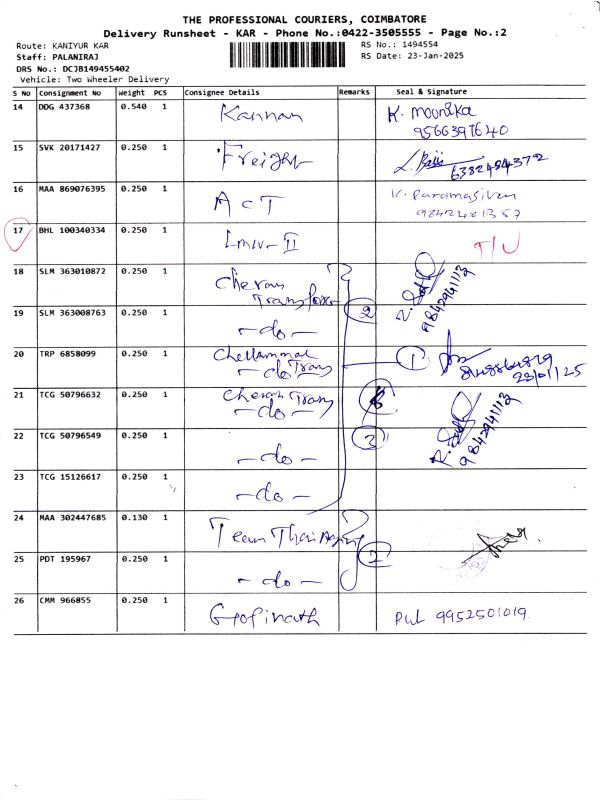 THE PROFESSIONAL COURIERS, COIMBATORE
Delivery Runsheet - KAR - Phone No.:0422-3505555 - Page No.:2
Route: KANIYUR KAR RS No.: 1494554
Staff: PALANIRAJ RS Date: 23-Jan-2025
DRS No.: DCJB149455402
Vehicle: Two Wheeler Delivery
S No Consignment No Weight PCS Consignee Details Remarks Seal & Signature
14 DDG 437368 0.540 1 Kannan K. mounika
9566397640
15 SVK 20171427 0.250 1 Freight 6382494372
16 MAA 869076395 0.250 1 ACT K. Paramasivan
17 BHL 100340334 0.250 1 II
18 SLM 363010872 0.250 1 Cheran
9842941112
19 SLM 363008763 0.250 1 -do- 2
20 TRP 6858099 0.250 1 Chellammal
-do Trans 1
23/01/25
21 TCG 50796632 0.250 1 Cheran Trans
-do-
22 TCG 50796549 0.250 1 -do- 3
9842941112
23 TCG 15126617 0.250 1 -do-
24 MAA 302447685 0.130 1 Team Thai
25 PDT 195967 0.250 1 -do- 2
26 CMM 966855 0.250 1 Gopinath 9952501019